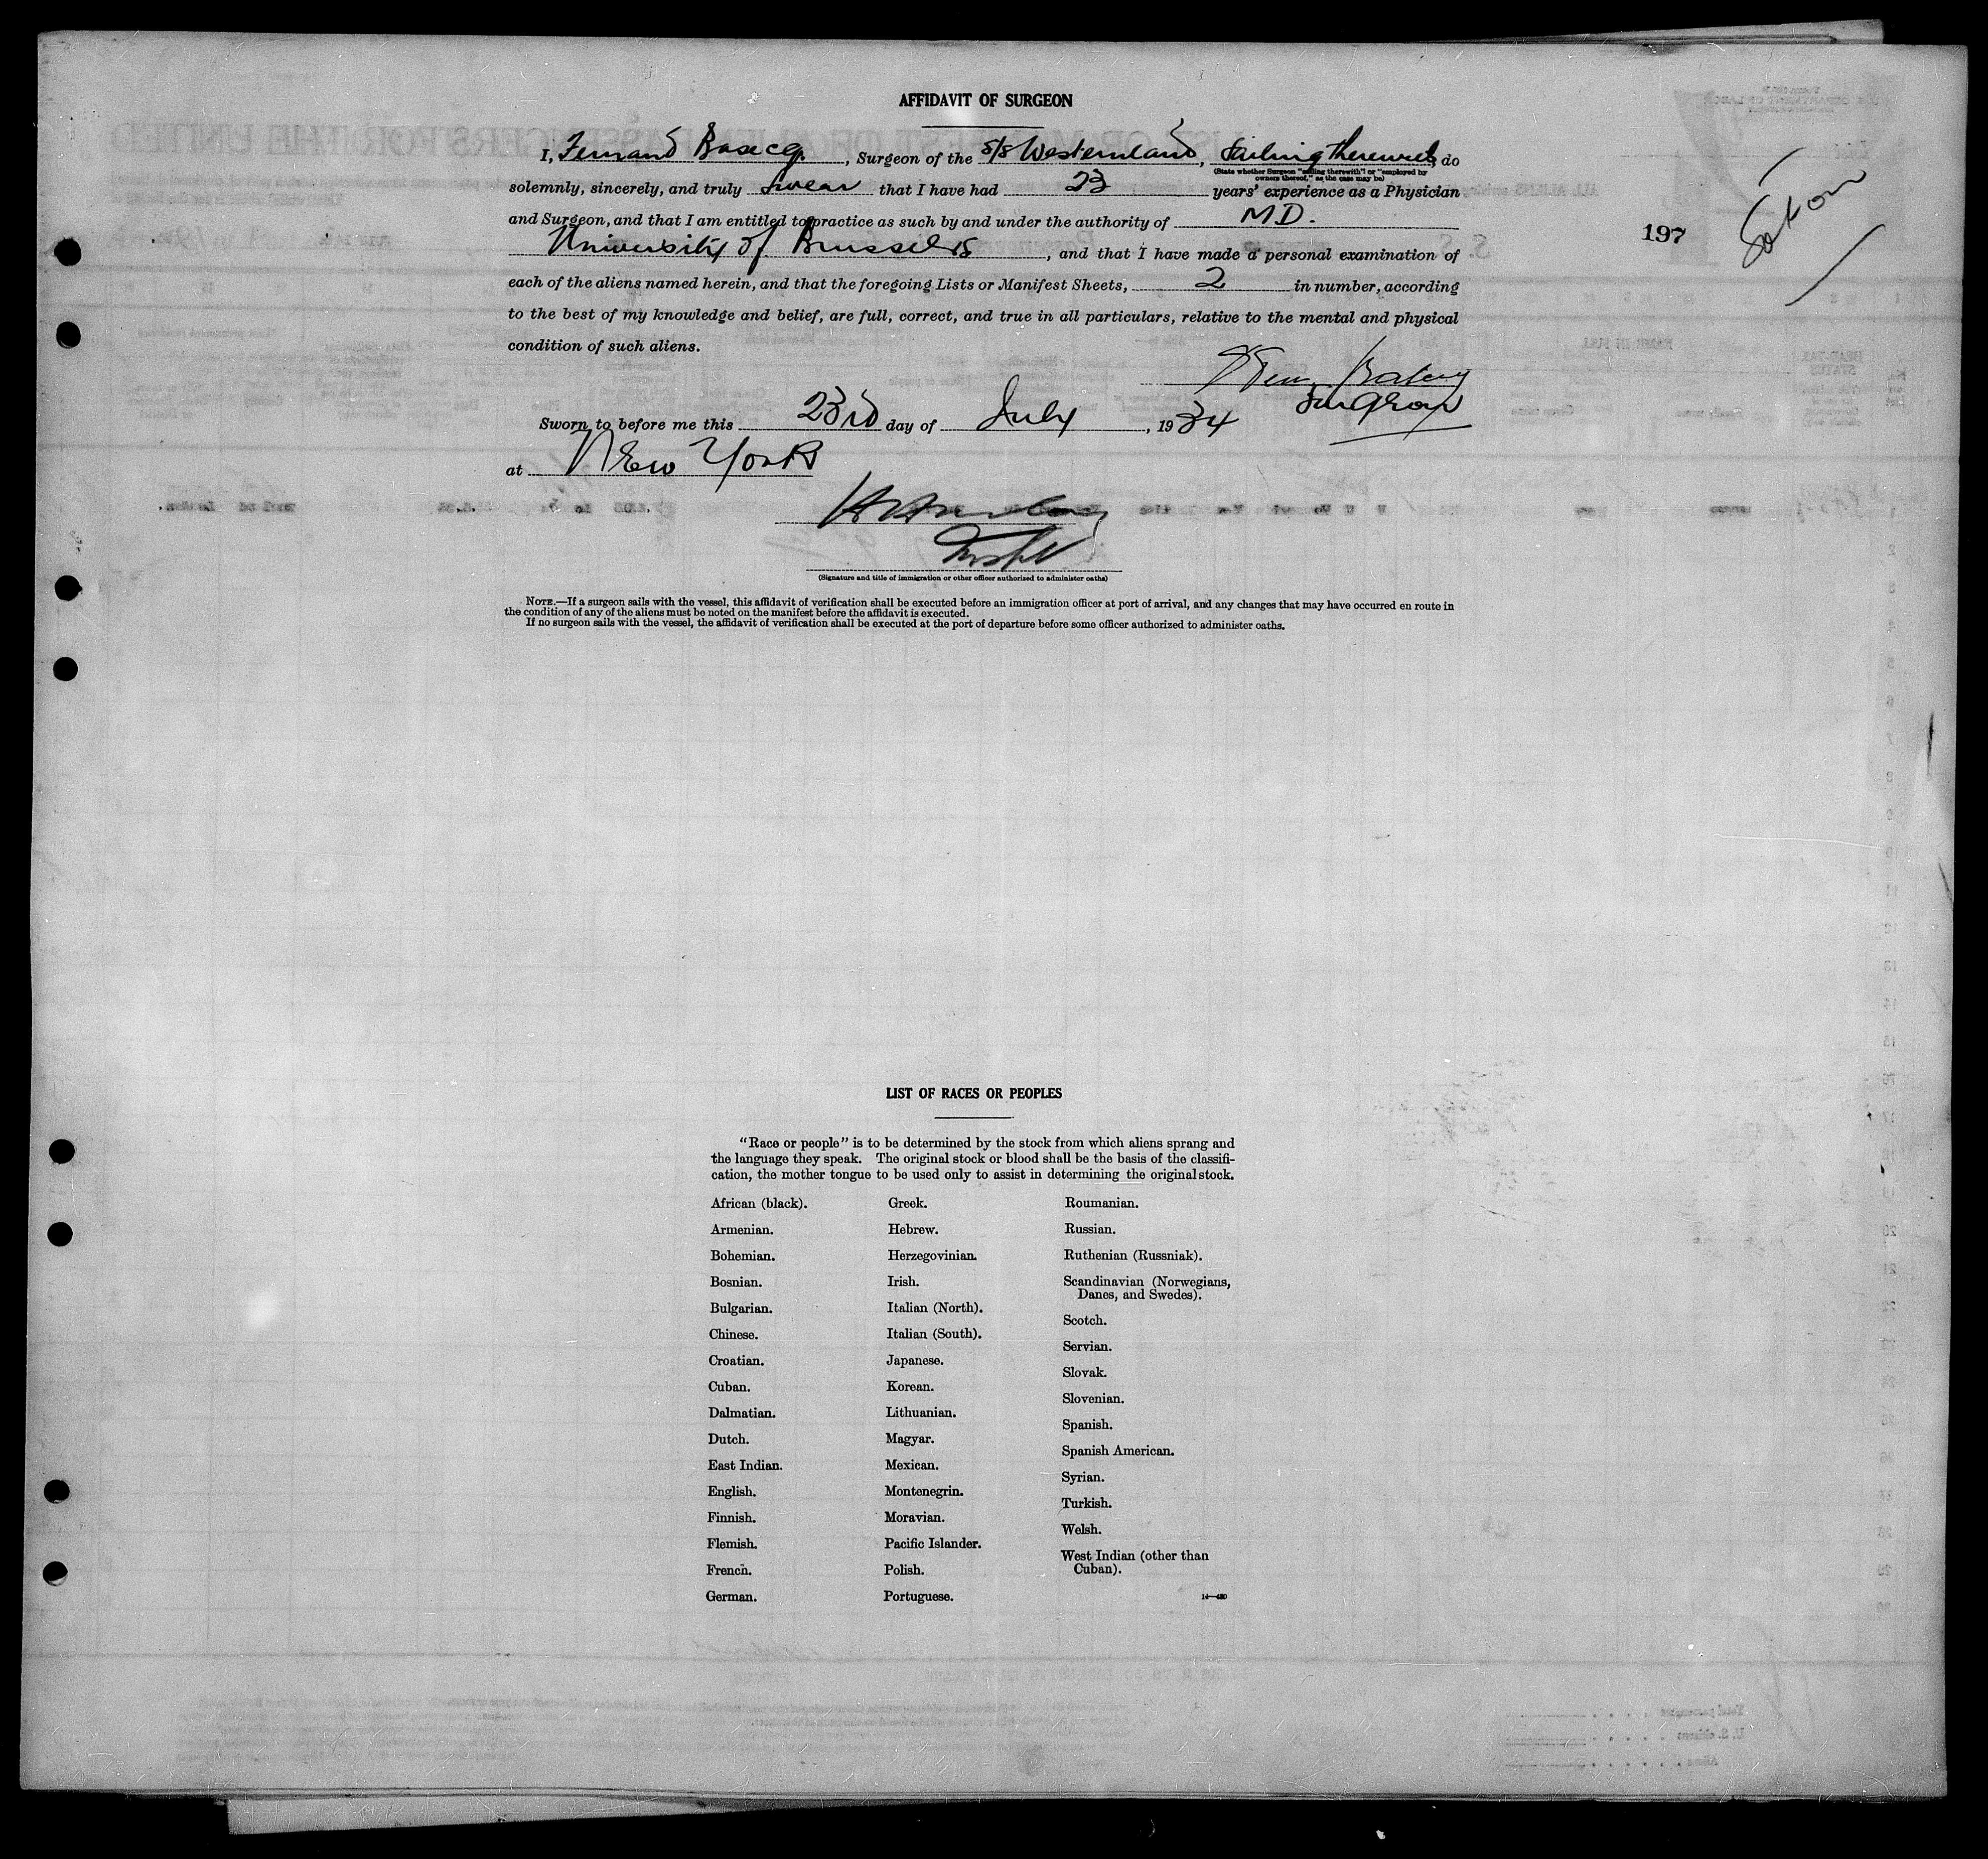 AFFIDAVIT OF SURGEON
I, Fernand Basecq, Surgeon of the S/S Westernland, Sailing therewith, do
(State whether Surgeon "sailing therewith" or "employed by
owners thereof," as the case may be)
solemnly, sincerely, and truly swear that I have had 23 years' experience as a Physician
and Surgeon, and that I am entitled to practice as such by and under the authority of M.D.
University of Brussels, and that I have made a personal examination of
each of the aliens named herein, and that the foregoing Lists or Manifest Sheets, 2 in number, according
to the best of my knowledge and belief, are full, correct, and true in all particulars, relative to the mental and physical
condition of such aliens.
Surgeon
Sworn to before me this 23rd day of July, 1934
at New York
(Signature and title of immigration or other officer authorized to administer oaths)
NOTE.—If a surgeon sails with the vessel, this affidavit of verification shall be executed before an immigration officer at port of arrival, and any changes that may have occurred en route in
the condition of any of the aliens must be noted on the manifest before the affidavit is executed.
If no surgeon sails with the vessel, the affidavit of verification shall be executed at the port of departure before some officer authorized to administer oaths.
197
LIST OF RACES OR PEOPLES
"Race or people" is to be determined by the stock from which aliens sprang and
the language they speak. The original stock or blood shall be the basis of the classifi-
cation, the mother tongue to be used only to assist in determining the original stock.
African (black).
Armenian.
Bohemian.
Bosnian.
Bulgarian.
Chinese.
Croatian.
Cuban.
Dalmatian.
Dutch.
East Indian.
English.
Finnish.
Flemish.
French.
German.
Greek.
Hebrew.
Herzegovinian.
Irish.
Italian (North).
Italian (South).
Japanese.
Korean.
Lithuanian.
Magyar.
Mexican.
Montenegrin.
Moravian.
Pacific Islander.
Polish.
Portuguese.
Roumanian.
Russian.
Ruthenian (Russniak).
Scandinavian (Norwegians,
Danes, and Swedes).
Scotch.
Servian.
Slovak.
Slovenian.
Spanish.
Spanish American.
Syrian.
Turkish.
Welsh.
West Indian (other than
Cuban).